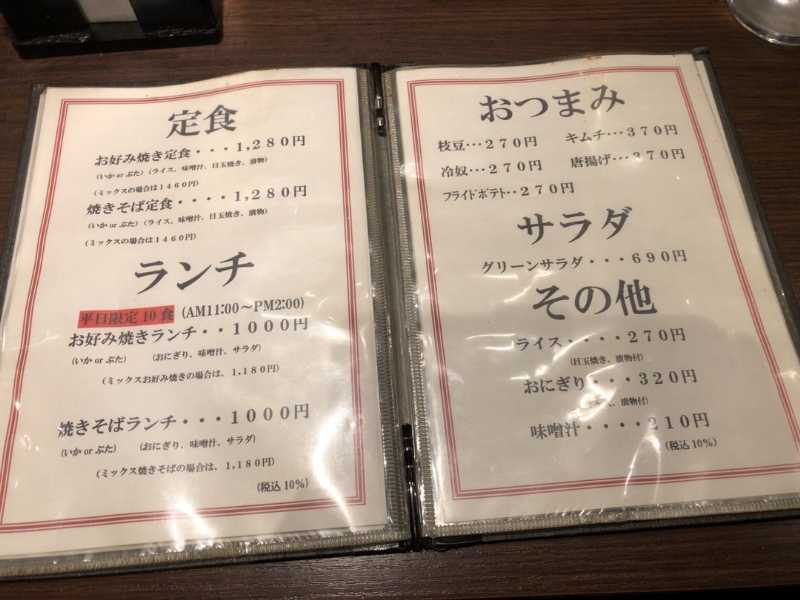 定食
お好み焼き定食・・・1,280円
(いか or ぶた)(ライス、味噌汁、目玉焼き、漬物)
(ミックスの場合は1460円)
焼きそば定食・・・・1,280円
(いか or ぶた)(ライス、味噌汁、目玉焼き、漬物)
(ミックスの場合は1460円)
ランチ
平日限定10食 (AM11:00～PM2:00)
お好み焼きランチ・・1000円
(いか or ぶた) (おにぎり、味噌汁、サラダ)
(ミックスお好み焼きの場合は、1,180円)
焼きそばランチ・・・1000円
(いか or ぶた) (おにぎり、味噌汁、サラダ)
(ミックス焼きそばの場合は、1,180円)
(税込10%)
おつまみ
枝豆・・・270円 キムチ・・・370円
冷奴・・・270円 唐揚げ・・・370円
フライドポテト・・270円
サラダ
グリーンサラダ・・・690円
その他
ライス・・・・270円
(目玉焼き、漬物付)
おにぎり・・・320円
、漬物付)
味噌汁・・・・210円
(税込10%)